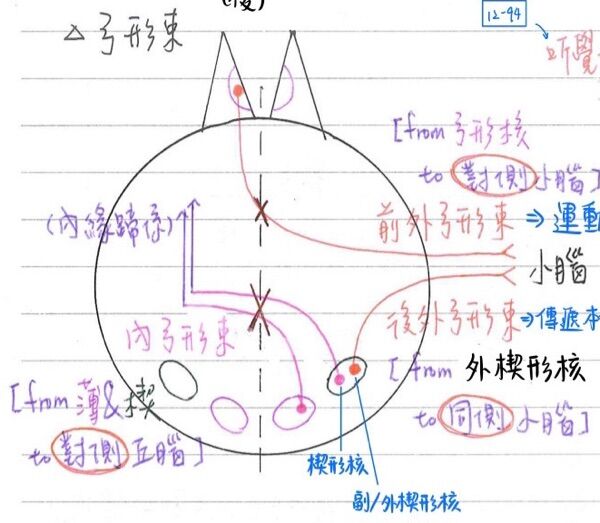 (後)
12-94
△弓形束
聽覺
[from 弓形核
to 對側小腦]
(內緣蹄係)
前外弓形束 ⇒ 運動
小腦
後外弓形束 ⇒ 傳遞本
內弓形束
[from 外楔形核
to 同側小腦]
[from 薄&楔
to 對側丘腦]
楔形核
副/外楔形核